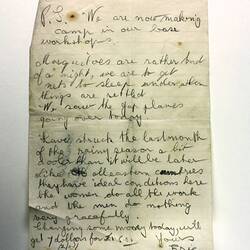 P.S. We are now making
camp in our base
workshops.
Mosquitoes are rather bad
of a night, we are to get
nets to sleep under when
things are settled.
We saw the Jap planes
going over today.
Have struck the last month
of the rainy season a bit
cooler than it will be later
Like all eastern countries
they have ideal conditions here
the women do all the work
and the men do nothing
very gracefully.
Changing some money today, will
get 7 dollars for
Yours
Eric